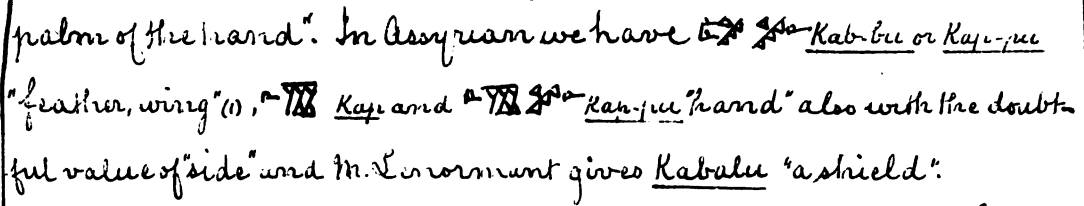 palm of the hand". In Assyrian we have Kab-bu or Kap-pu
"feather, wing" (1), Kap and Kap-pu "hand" also with the doubt-
ful value of "side" and M. Lenormant gives Kabalu "a shield".